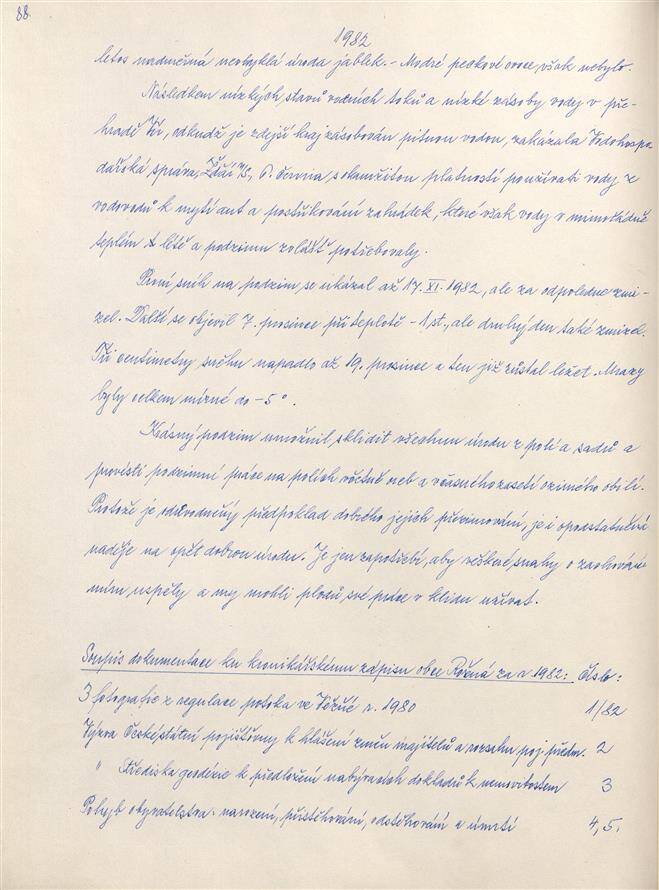 88.
1982
letos nadměrná neobvyklá úroda jablek. - Modré peckové ovoce, však nebylo.
Následkem nízkých stavů vodních toků a nízké zásoby vody v pře-
hradě Vír, odkudž je zdejší kraj zásobován pitnou vodou, zakázala Vodohospo-
dářská správa, Žďár n/S, června s okamžitou platností používati vody z
vodovodů k mytí aut a postřikování zahrádek, které však vody v mimořádně
teplém létě a podzimu zvlášť potřebovaly.
První sníh na podzim se ukázal až 17. XI. 1982, ale za odpoledne zmi-
zel. Další se objevil 7. prosince při teplotě -1 st., ale druhý den také zmizel.
Tři centimetry sněhu napadlo až 19. prosince a ten již zůstal ležet. Mrazy
byly celkem mírné do -5°.
Krásný podzim umožnil sklidit všechnu úrodu z polí a sadů a
provésti podzimní práce na polích včetně oseb a včasného zasetí ozimého obilí.
Protože je odůvodněný předpoklad dobrého jejich přezimování, je i opodstatněná
naděje na opět dobrou úrodu. Je jen zapotřebí, aby veškeré snahy o zachování
míru uspěly a my mohli plodů své práce v klidu užívat.
Soupis dokumentace ku kronikářskému zápisu obce Rožná za r. 1982: Číslo:
3 fotografie z regulace potoka ve Věžné r. 1980 1/82
Výzva České státní pojišťovny k hlášení změn majitelů a rozsahu poj. předm. 2
" Střediska geodézie k předložení nabývacích dokladů k nemovitostem 3
Pohyb obyvatelstva - narození, přistěhování, odstěhování a úmrtí 4, 5.